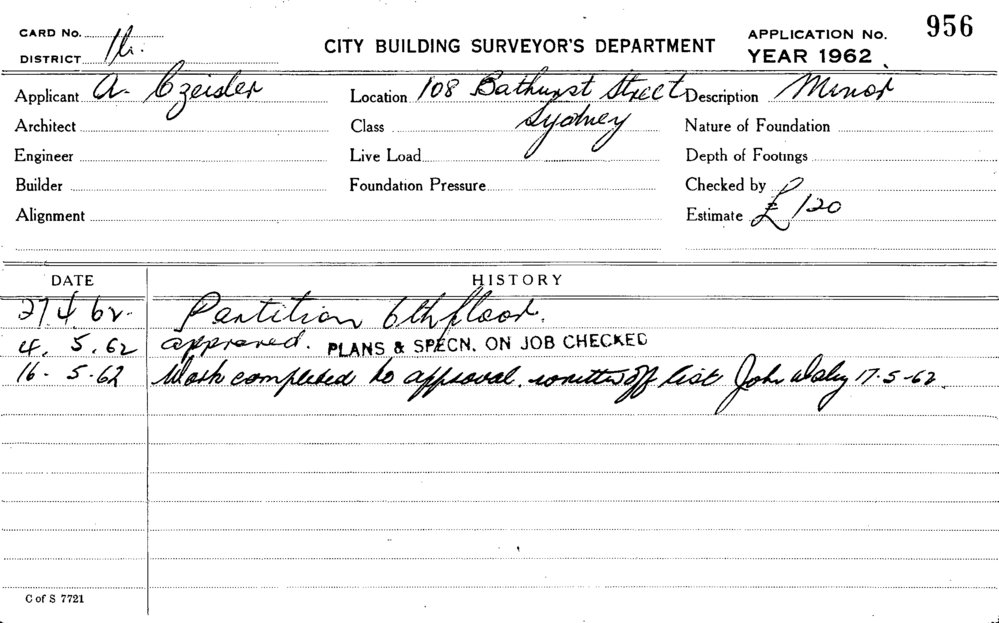 CARD No. CITY BUILDING SURVEYOR'S DEPARTMENT APPLICATION No. 956
DISTRICT YEAR 1962
Applicant A. Czeisler Location 108 Bathurst Street Description Minor
Architect Class Sydney Nature of Foundation
Engineer Live Load Depth of Footings
Builder Foundation Pressure Checked by
Alignment Estimate £120
DATE HISTORY
27 4 62. Partition 6th floor.
4. 5. 62 approved. PLANS & SPECN. ON JOB CHECKED
16. 5. 62 Work completed to approval. written off list John 17.5.62.
C of S 7721